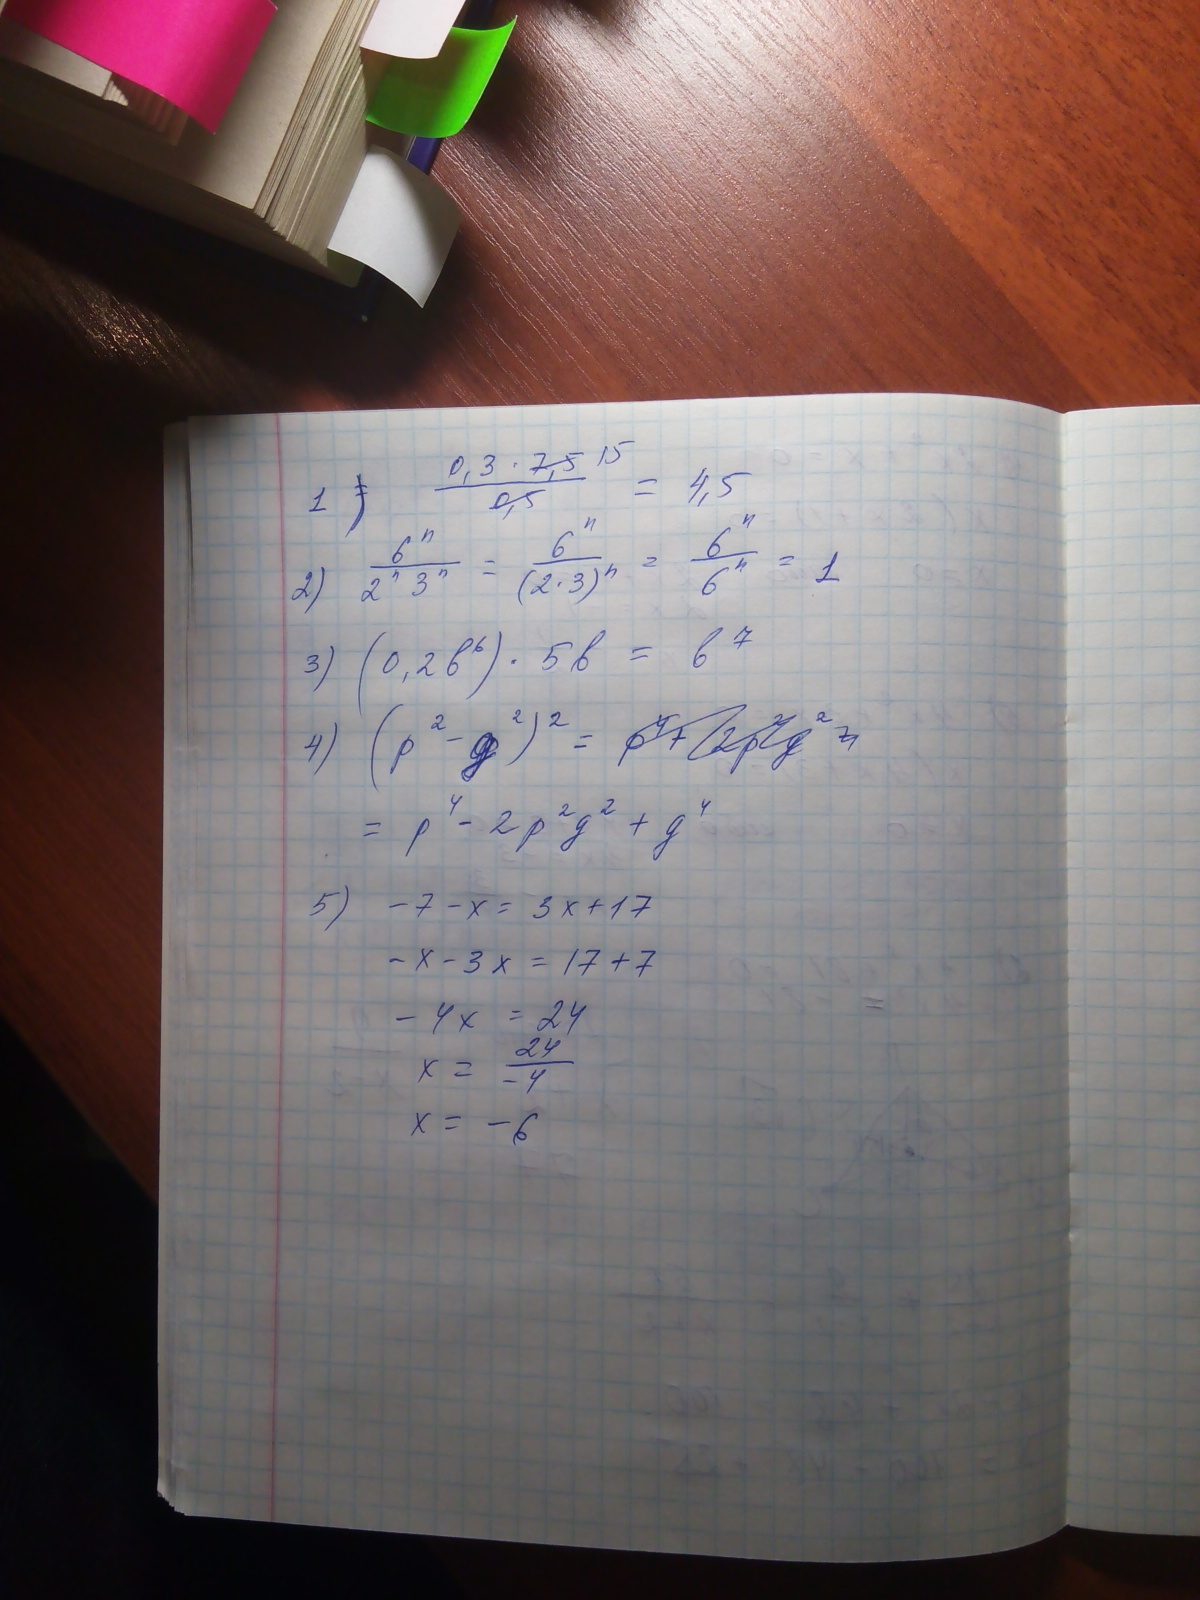 1) (0,3 · 7,5 15)/0,5 = 4,5
2) 6ⁿ/(2ⁿ 3ⁿ) = 6ⁿ/(2·3)ⁿ = 6ⁿ/6ⁿ = 1
3) (0,2b⁶) · 5b = b⁷
4) (p² - g²)² =
= p⁴ - 2p²g² + g⁴
5) -7 - x = 3x + 17
-x - 3x = 17 + 7
-4x = 24
x = 24/-4
x = -6